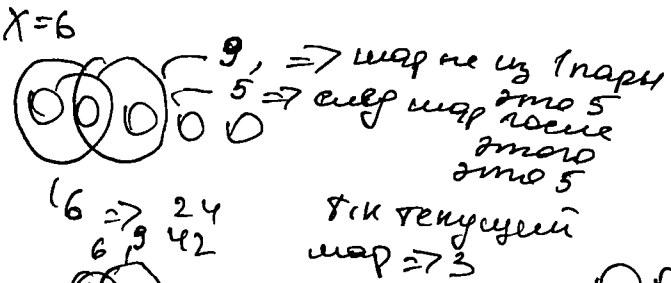 X=6
9, => шар не из 1 пары
5 => след шар это 5
после
этого
это 5
6 => 24
42
т.к текущий
шар => 3
6, 9